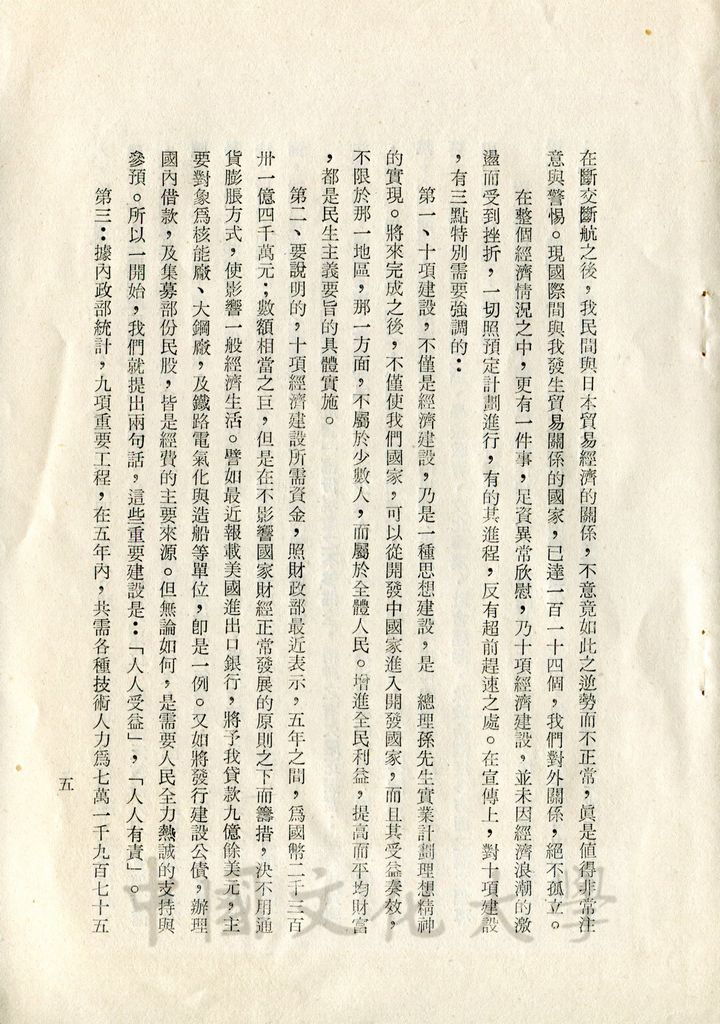 在斷交斷航之後，我民間與日本貿易經濟的關係，不意竟如此之逆勢而不正常，眞是値得非常注
意與警惕。現國際間與我發生貿易關係的國家，已達一百一十四個，我們對外關係，絕不孤立。
在整個經濟情況之中，更有一件事，足資異常欣慰，乃十項經濟建設，並未因經濟浪潮的激
盪而受到挫折，一切照預定計劃進行，有的其進程，反有超前趕速之處。在宣傳上，對十項建設
，有三點特別需要強調的：
第一、十項建設，不僅是經濟建設，乃是一種思想建設，是　總理孫先生實業計劃理想精神
的實現。將來完成之後，不僅使我們國家，可以從開發中國家進入開發國家，而且其受益奏效，
不限於那一地區，那一方面，不屬於少數人，而屬於全體人民。增進全民利益，提高而平均財富
，都是民生主義要旨的具體實施。
第二、要說明的，十項經濟建設所需資金，照財政部最近表示，五年之間，爲國幣二千三百
卅一億四千萬元；數額相當之巨，但是在不影響國家財經正常發展的原則之下而籌措，決不用通
貨膨脹方式，使影響一般經濟生活。譬如最近報載美國進出口銀行，將予我貸款九億餘美元，主
要對象爲核能廠、大鋼廠，及鐵路電氣化與造船等單位，卽是一例。又如將發行建設公債，辦理
國內借款，及集募部份民股，皆是經費的主要來源。但無論如何，是需要人民全力熱誠的支持與
參預。所以一開始，我們就提出兩句話，這些重要建設是：「人人受益」，「人人有責」。
第三：據內政部統計，九項重要工程，在五年內，共需各種技術人力爲七萬一千九百七十五
五
中國文化大學